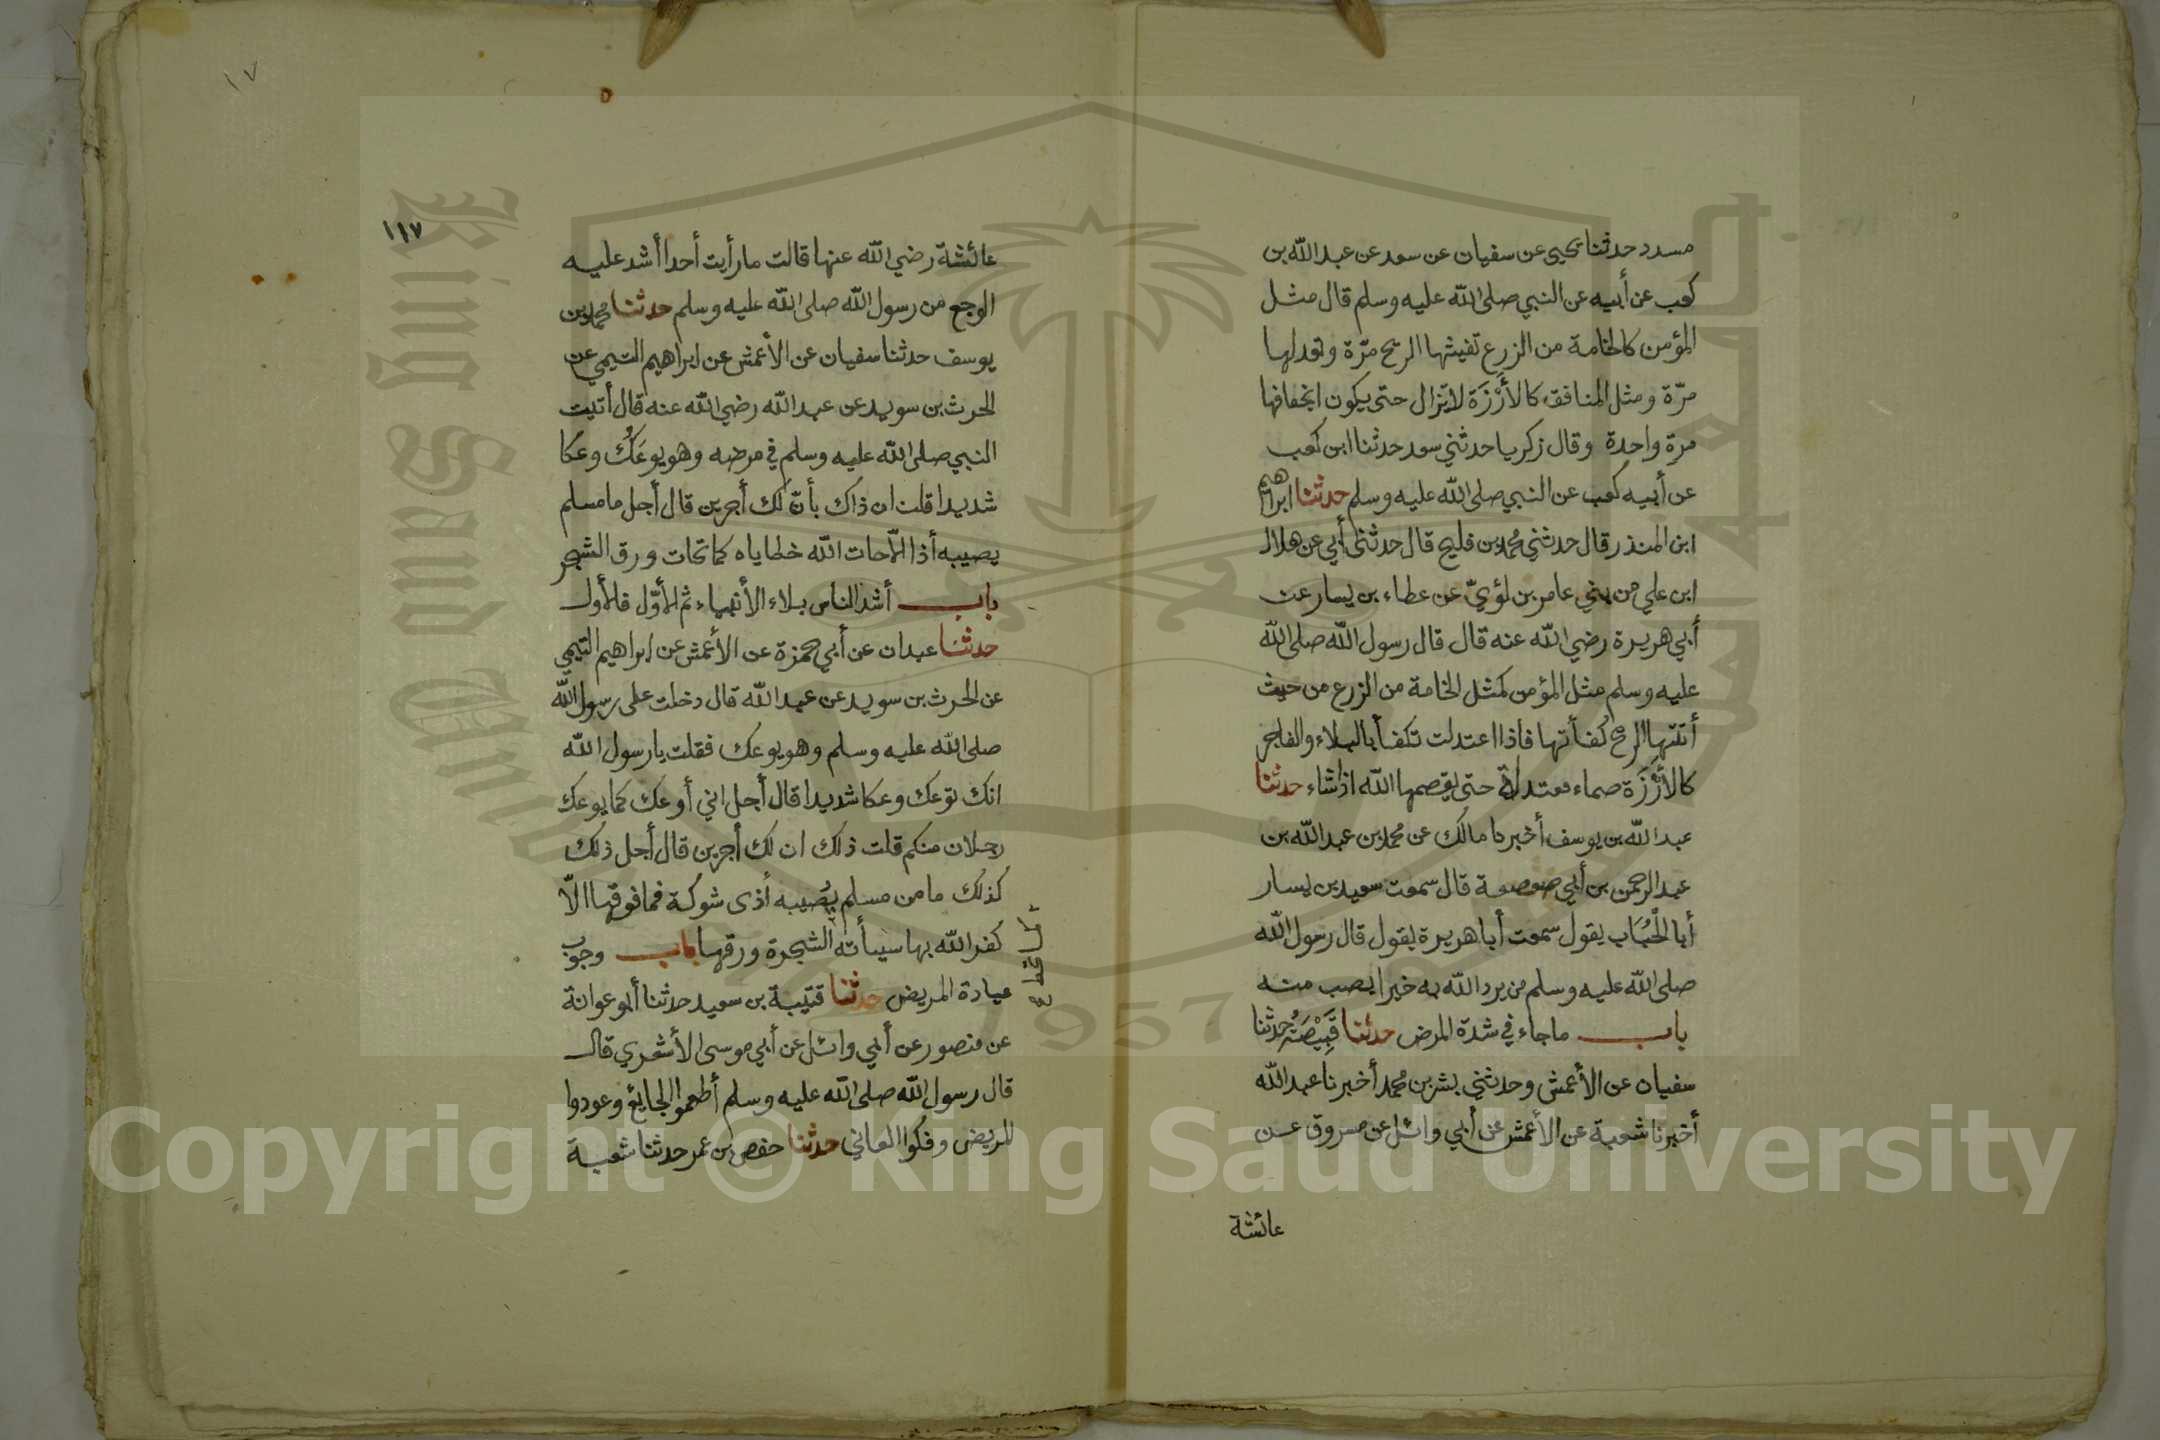 مسدد حدثنا يحيى عن سفيان عن سعد عن عبد الله بن
كعب عن أبيه عن النبي صلى الله عليه وسلم قال مثل
المؤمن كالخامة من الزرع تفيئها الريح مرّة وتعدلها
مرّة ومثل المنافق كالأَرْزَة لا تزال حتى يكون انجعافها
مرة واحدة وقال زكريا حدثني سعد حدثنا ابن كعب
عن أبيه كعب عن النبي صلى الله عليه وسلم حدثنا ابراهيم
ابن المنذر قال حدثني محمد بن فليح قال حدثني أبي عن هلال
ابن علي من بني عامر بن لؤيّ عن عطاء بن يسار عن
أبي هريرة رضي الله عنه قال قال رسول الله صلى الله
عليه وسلم مثل المؤمن كمثل الخامة من الزرع من حيث
أتتها الريح كفأتها فاذا اعتدلت تكفأ بالبلاء والفاجر
كالأَرْزَة صماء معتدلة حتى يقصمها الله اذا شاء حدثنا
عبد الله بن يوسف أخبرنا مالك عن محمد بن عبد الله بن
عبد الرحمن بن أبي صعصعة قال سمعت سعيد بن يسار
أبا الحُبَاب يقول سمعت أبا هريرة يقول قال رسول الله
صلى الله عليه وسلم من يرد الله به خيرا يصب منه
باب ما جاء في شدة المرض حدثنا قَبِيْصَةُ حدثنا
سفيان عن الأعمش وحدثني بشر بن محمد أخبرنا عبد الله
أخبرنا شعبة عن الأعمش عن أبي وائل عن مسروق عن
عائشة
١٧
١١٧
عائشة رضي الله عنها قالت ما رأيت أحدا أشد عليه
الوجع من رسول الله صلى الله عليه وسلم حدثنا محمد بن
يوسف حدثنا سفيان عن الأعمش عن ابراهيم التيمي عن
الحرث بن سويد عن عبد الله رضي الله عنه قال أتيت
النبي صلى الله عليه وسلم في مرضه وهو يوعَكُ وعكا
شديدا قلت ان ذاك بأنّ لك أجرين قال أجل ما مسلم
يصيبه أذا الّا حات الله خطاياه كما تحات ورق الشجر
باب أشد الناس بلاء الأنبياء ثم الأوّل فالأول
حدثنا عبدان عن أبي حمزة عن الأعمش عن ابراهيم التيمي
عن الحرث بن سويد عن عبد الله قال دخلت على رسول الله
صلى الله عليه وسلم وهو يوعك فقلت يا رسول الله
انك توعك وعكا شديدا قال أجل اني أوعك كما يوعك
رجلان منكم قلت ذلك ان لك أجرين قال أجل ذلك
كذلك ما من مسلم يُصيبه أذى شوكة فما فوقها الّا
كفر الله بها سيأته الشجرة ورقها باب وجوب
عيادة المريض حدثنا قتيبة بن سعيد حدثنا أبو عوانة
عن منصور عن أبي وائل عن أبي موسى الأشعري قال
قال رسول الله صلى الله عليه وسلم أطعموا الجايع وعودوا
المريض وفكوا العاني حدثنا حفص بن عمر حدثنا شعبة
Copyright © King Saud University
1957